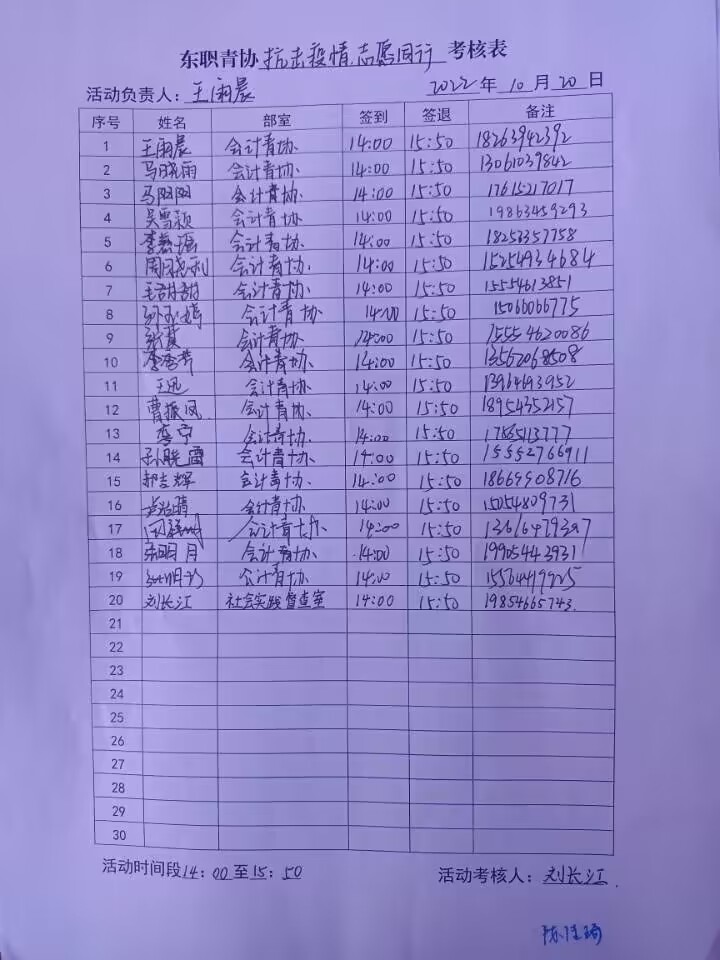 东职青协 抗击疫情,志愿同行 考核表
活动负责人：王雨晨 2022年10月20日
序号 姓名 部室 签到 签退 备注
1 王雨晨 会计青协 14:00 15:50 18263942392
2 马晓雨 会计青协 14:00 15:50 13061039842
3 马阳阳 会计青协 14:00 15:50 17615217017
4 吴雪颖 会计青协 14:00 15:50 19863459293
5 会计青协 14:00 15:50 18253357758
6 周晓利 会计青协 14:00 15:50 15254934684
7 王甜甜 会计青协 14:00 15:50 15554613851
8 会计青协 14:00 15:50 15066066775
9 会计青协 14:00 15:50 15554620086
10 会计青协 14:00 15:50 13562068508
11 王迅 会计青协 14:00 15:50 13964693952
12 曹振凤 会计青协 14:00 15:50 18954352157
13 李宁 会计青协 14:00 15:50 17865113777
14 孙晓雷 会计青协 14:00 15:50 15552766911
15 郝吉辉 会计青协 14:00 15:50 18669908716
16 会计青协 14:00 15:50 15054809731
17 会计青协 14:00 15:50
18 张明月 会计青协 14:00 15:50 19905443931
19 会计青协 14:00 15:50 15564419925
20 刘长江 社会实践督查室 14:00 15:50 19854665743
21
22
23
24
25
26
27
28
29
30
活动时间段14：00至15：50 活动考核人：刘长江
陈佳琦